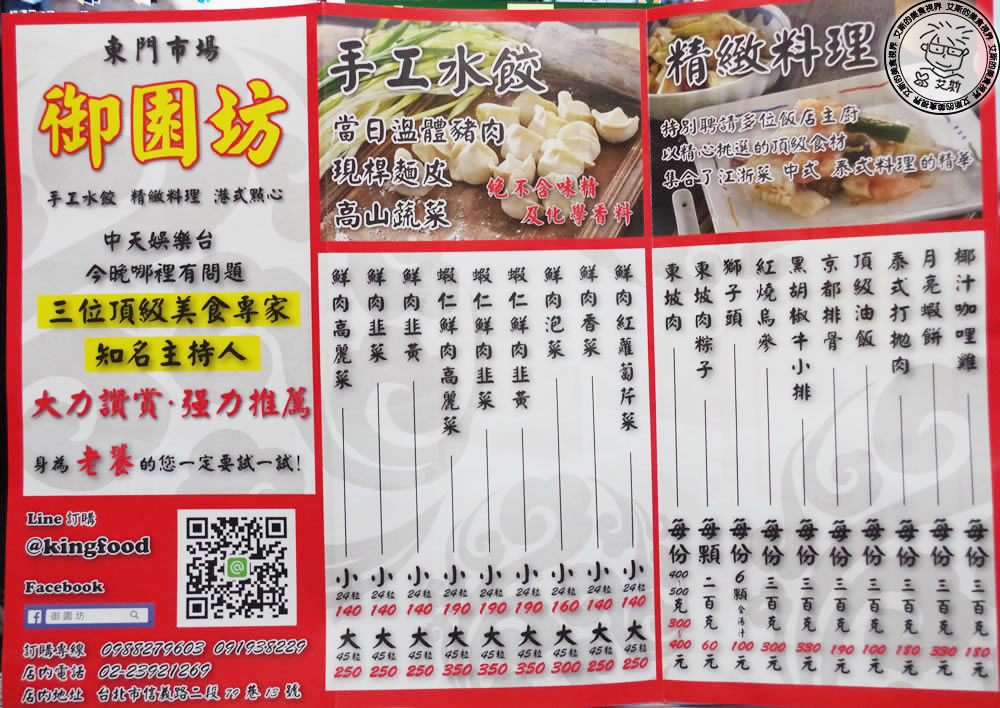 東門市場
御園坊
手工水餃 精緻料理 港式點心
中天娛樂台
今晚哪裡有問題
三位頂級美食專家
知名主持人
大力讚賞·强力推薦
身為老饕的您一定要試一試!
Line 訂購
@kingfood
Facebook
御園坊
訂購專線 0988279603 091938229
店內電話 02-23921269
店內地址 台北市信義路二段79巷13號
手工水餃
當日溫體豬肉
現桿麵皮
高山蔬菜
絕不含味精
及化學香料
鮮肉高麗菜 小 24粒 140 大 45粒 250
鮮肉韭菜 小 24粒 140 大 45粒 250
鮮肉韭黃 小 24粒 140 大 45粒 250
蝦仁鮮肉高麗菜 小 24粒 190 大 45粒 350
蝦仁鮮肉韭菜 小 24粒 190 大 45粒 350
蝦仁鮮肉韭黃 小 24粒 190 大 45粒 350
鮮肉泡菜 小 24粒 160 大 45粒 300
鮮肉香菜 小 24粒 140 大 45粒 250
鮮肉紅蘿蔔芹菜 小 24粒 140 大 45粒 250
精緻料理
特別聘請多位飯店主廚
以精心挑選的頂級食材
集合了江浙菜 中式 泰式料理的精華
東坡肉 每份 400~500克 300~400元
東坡肉粽子 每顆 二百克 60元
獅子頭 每份 6顆含湯汁 100元
紅燒烏參 每份 三百克 300元
黑胡椒牛小排 每份 三百克 330元
京都排骨 每份 三百克 190元
頂級油飯 每份 三百克 100元
泰式打拋肉 每份 三百克 180元
月亮蝦餅 每份 三百克 330元
椰汁咖哩雞 每份 三百克 180元
艾斯的美食視界
艾斯